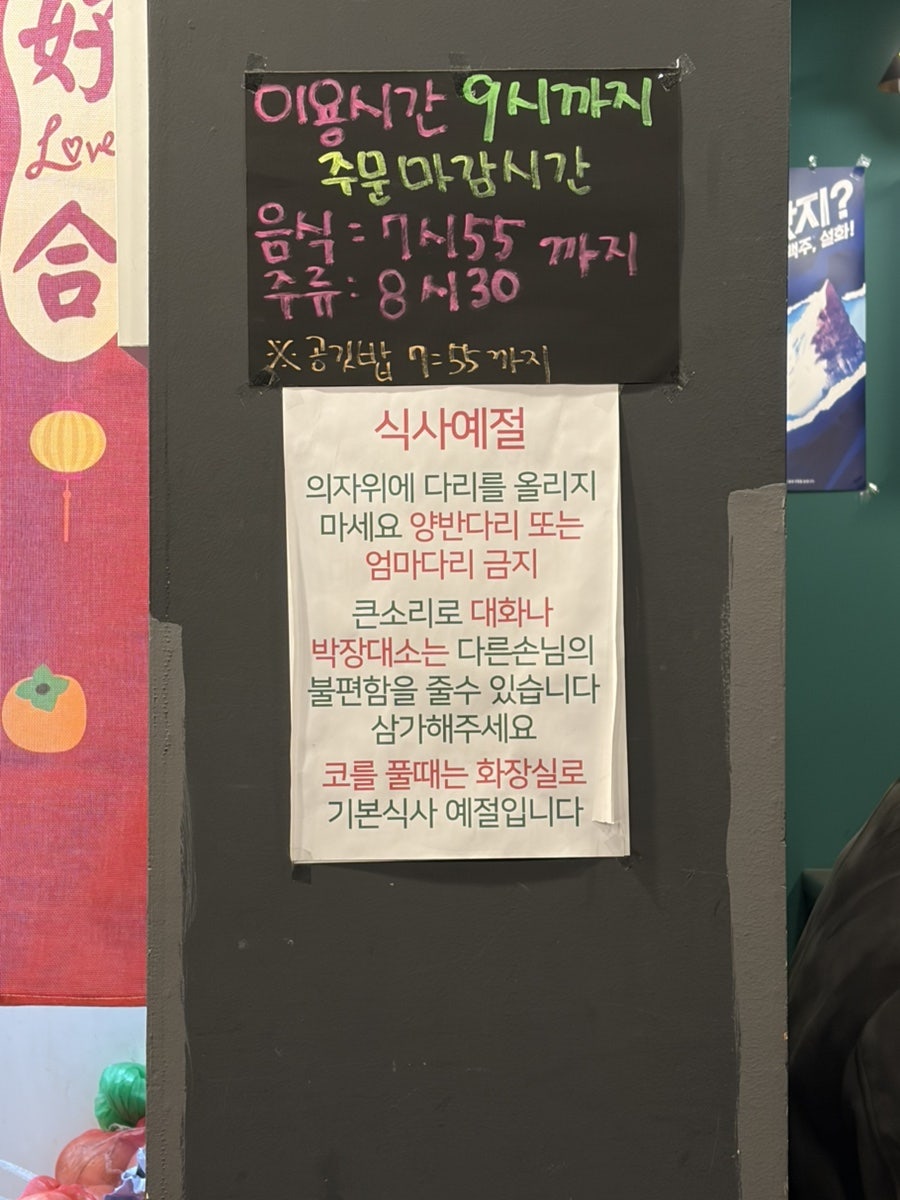 好
Love
合
이용시간 9시까지
주문마감시간
음식: 7시55 까지
주류: 8시30
※공깃밥 7:55까지
식사예절
의자위에 다리를 올리지
마세요 양반다리 또는
엄마다리 금지
큰소리로 대화나
박장대소는 다른손님의
불편함을 줄수 있습니다
삼가해주세요
코를 풀때는 화장실로
기본식사 예절입니다
지?
맥주, 설화!